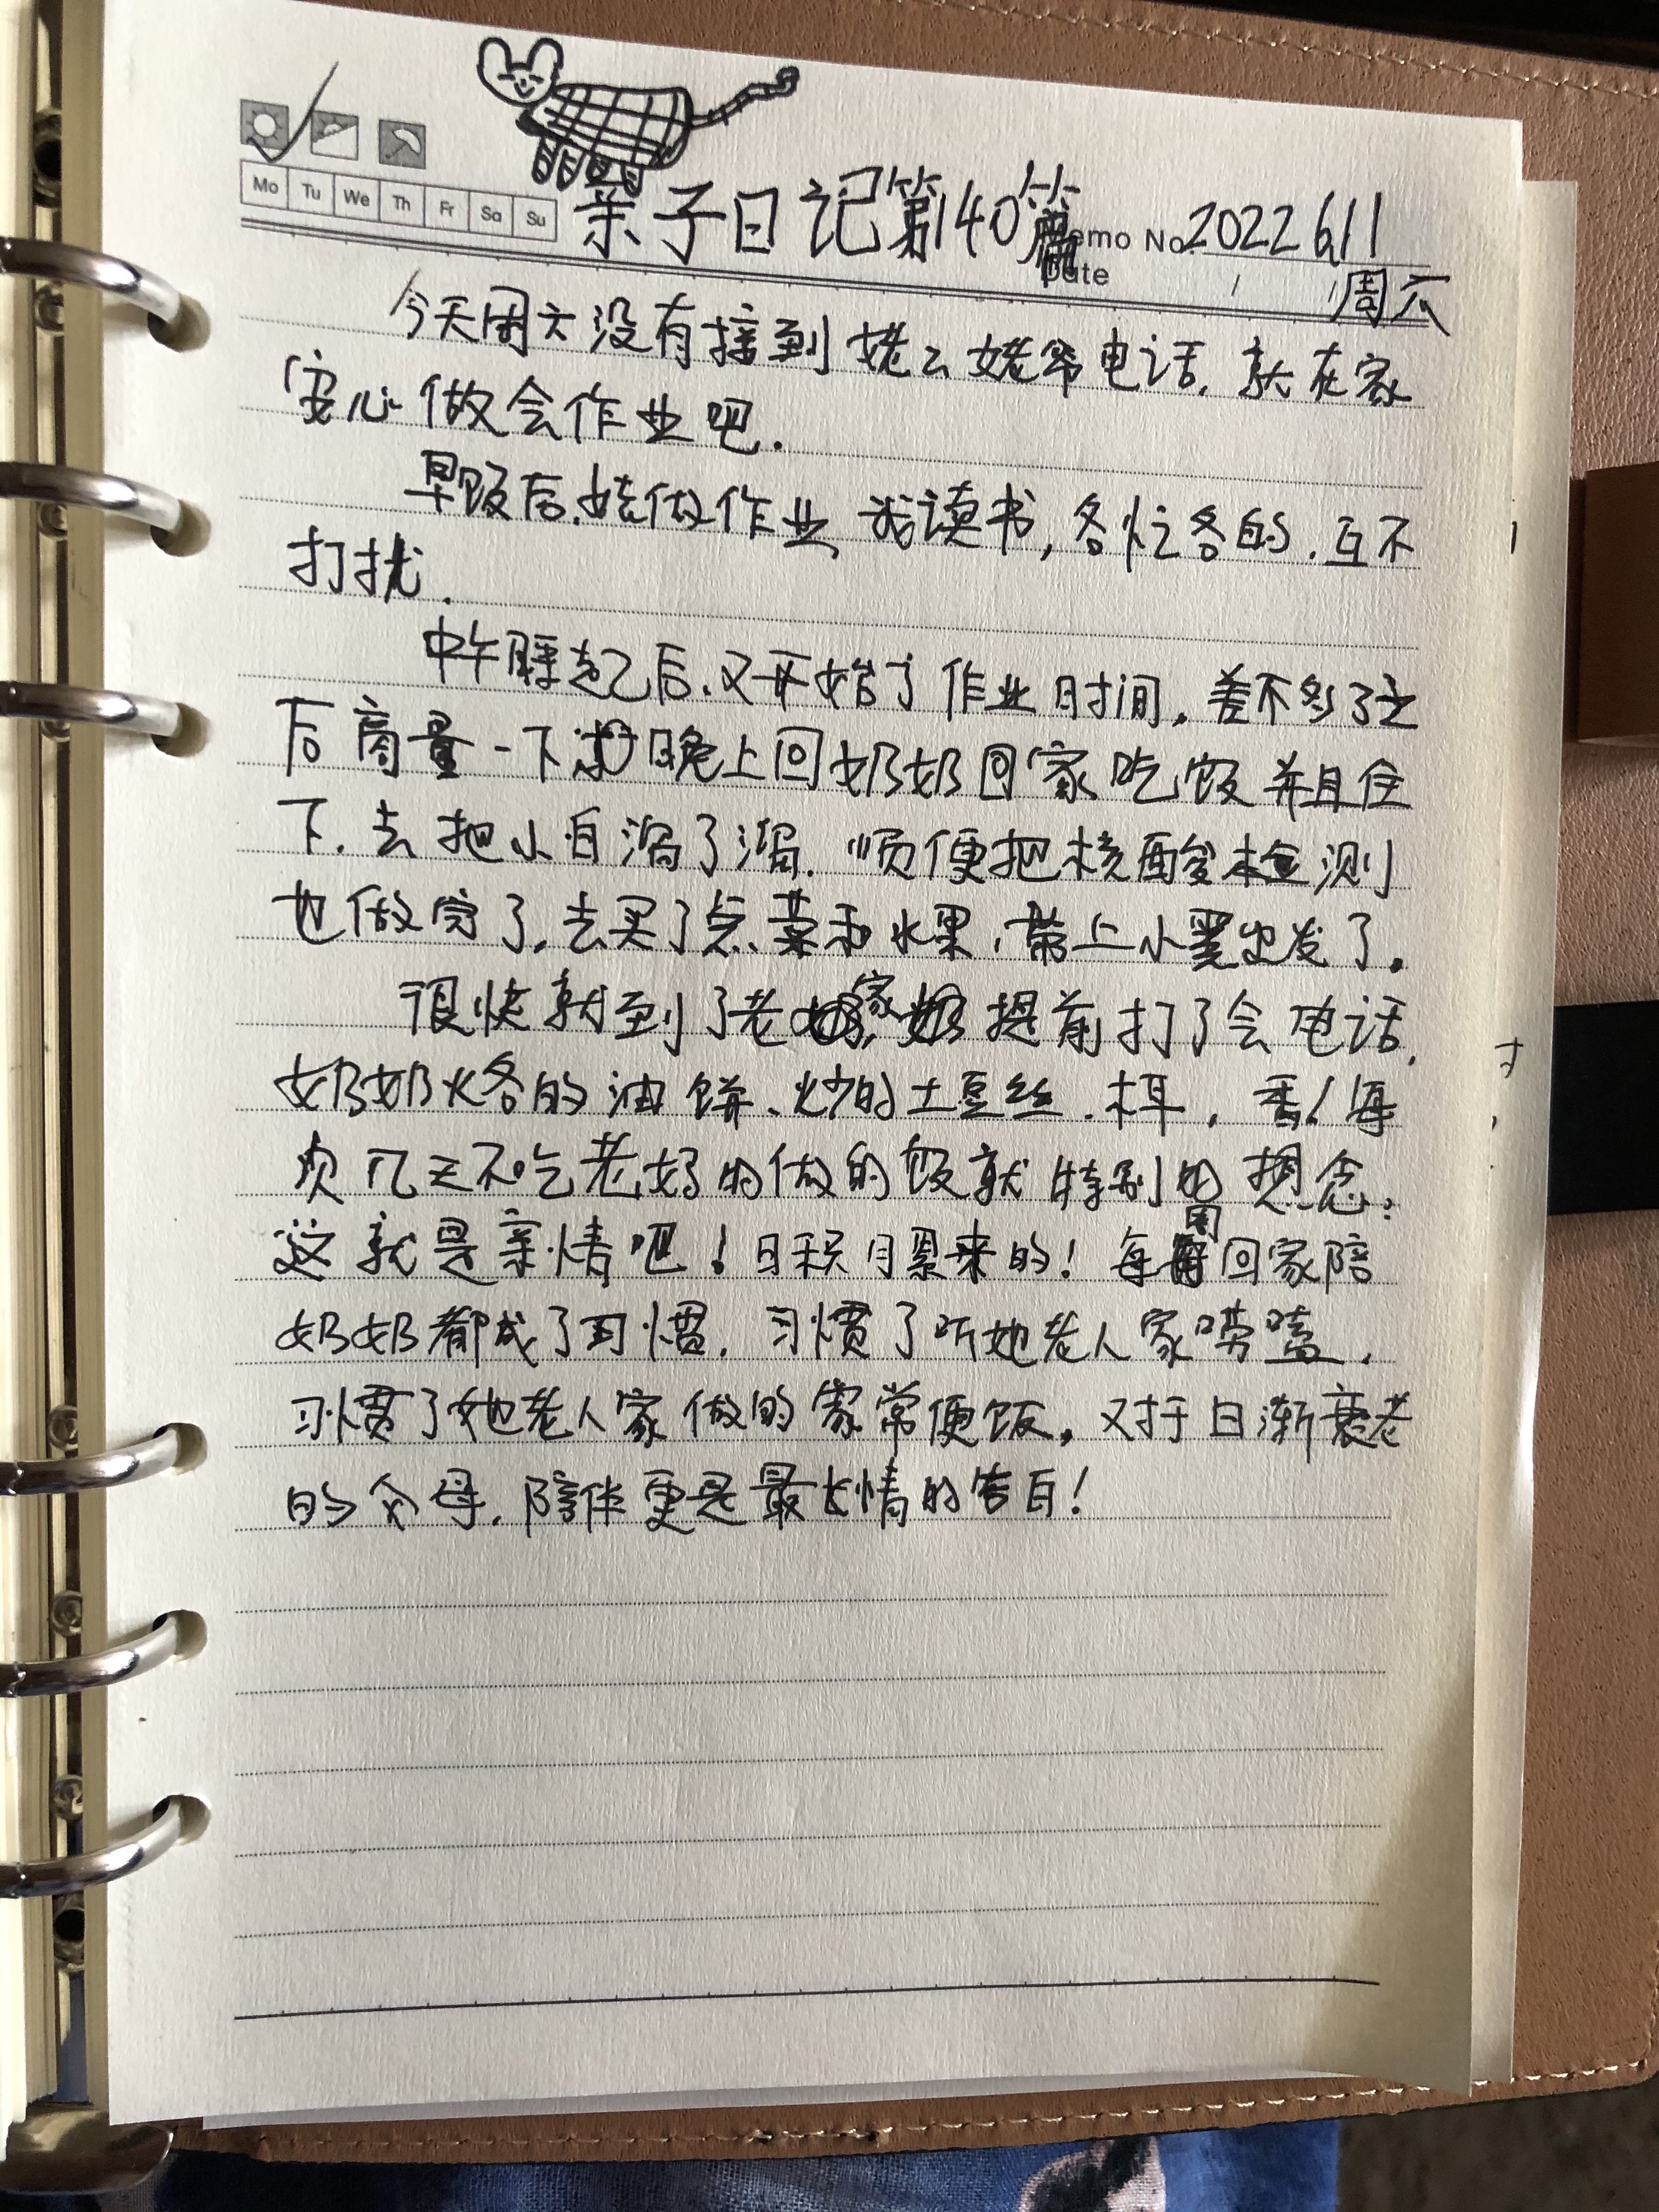 Mo Tu We Th Fr Sa Su
亲子日记第140篇
Memo No. 2022 6/11
Date / /
周六
今天周六没有接到姥姥姥爷电话,就在家
安心做会作业吧.
早饭后,娃做作业,我读书,各忙各的.互不
打扰.
中午睡起后,又开始了作业时间,差不多了之
后商量一下 晚上回奶奶回家吃饭并且住
下.去把小白溜了溜.顺便把核酸检测
也做完了,去买了点菜和水果,带上小黑出发了.
很快就到了老家, 提前打了会电话,
奶奶烙的油饼、炒的土豆丝.木耳,香!每
次几天不吃老妈的做的饭就特别的想念.
这就是亲情吧!日积月累来的!每周回家陪
奶奶都成了习惯.习惯了听她老人家唠嗑,
习惯了她老人家做的家常便饭,对于日渐衰老
的父母,陪伴更是最长情的告白!